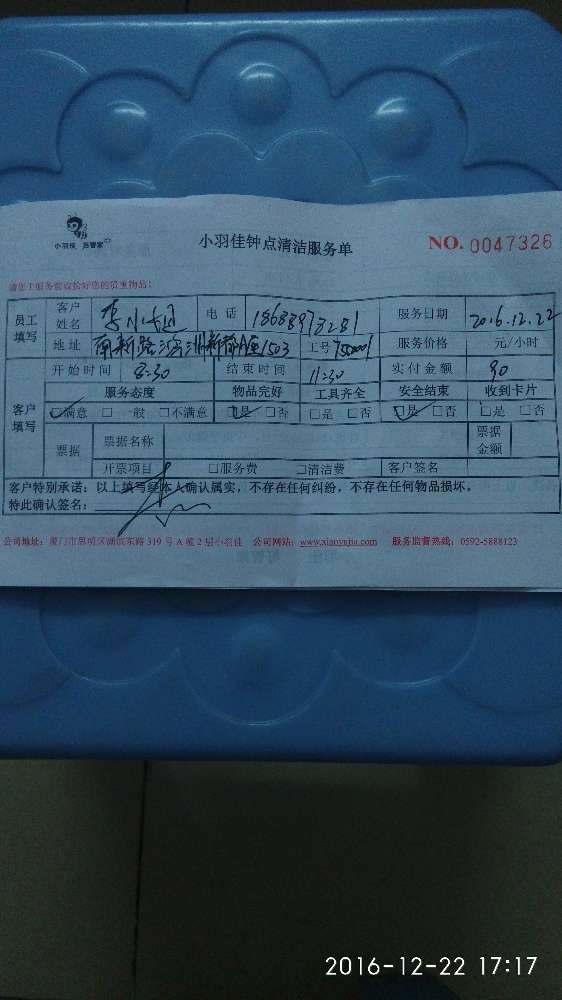 小羽佳 好管家
小羽佳钟点清洁服务单
NO. 0047326
请您于服务前收拾好您的贵重物品!
员工填写 客户姓名 李 电话 服务日期 2016.12.22
地址 南新路 1503 工号 服务价格 元/小时
客户填写 开始时间 8:30 结束时间 11:30 实付金额 90
服务态度 物品完好 工具齐全 安全结束 收到卡片
☑满意 □一般 □不满意 ☑是 □否 □是 □否 ☑是 □否 □是 □否
票据 票据名称 票据金额
开票项目 □服务费 □清洁费 客户签名
客户特别承诺：以上填写经本人确认属实，不存在任何纠纷，不存在任何物品损坏。
特此确认签名：
公司地址：厦门市思明区湖滨东路 319 号 A 幢 2 层小羽佳 公司网站：www.xiaoyujia.com 服务监督热线：0592-5888123
2016-12-22 17:17